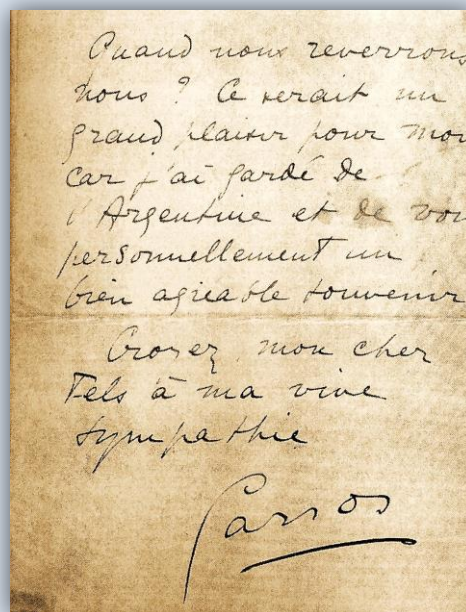 Quand nous reverrons
nous ? Ce serait un
grand plaisir pour moi
car j'ai gardé de
l'Argentine et de vous
personnellement un
bien agréable souvenir
Croyez, mon cher
Fels à ma vive
sympathie
Garros